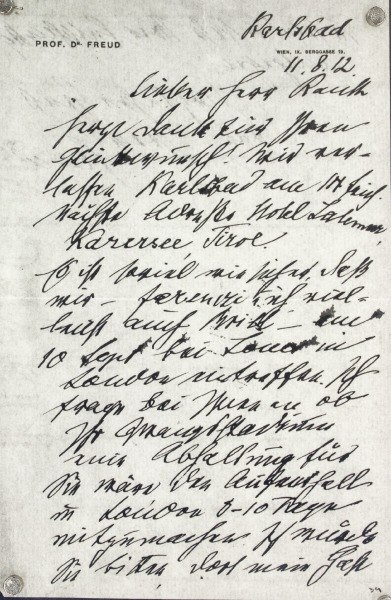 Karlsbad
PROF. Dr. FREUD
WIEN, IX. BERGGASSE 19.
11. 8. 12
Lieber Herr Rank
Herzl Dank für Ihren
Glückwunsch! Wir ver-
lassen Karlsbad am 14 früh
Nächste Adresse Hotel Latemar,
Karersee, Tirol.
Es ist so viel wie sicher, daß
wir – Ferenczi, ich viel-
leicht auch Brill – am
10 Sept bei Jones in
London eintreffen. Ich
frage bei Ihnen an ob
Ihr
eine Abhaltung für
Sie wäre den Aufenthalt
in London 8-10 Tage
mitzumachen. Ich würde
Sie bitten, dort mein Gast